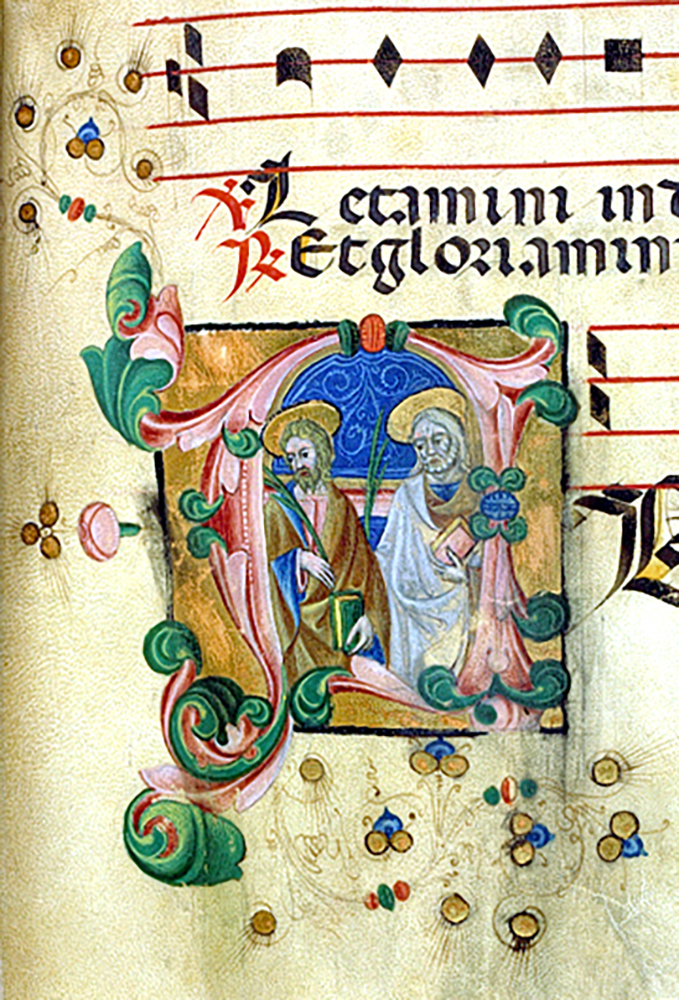 ℣ Letamini in d
℟ Et gloriamin